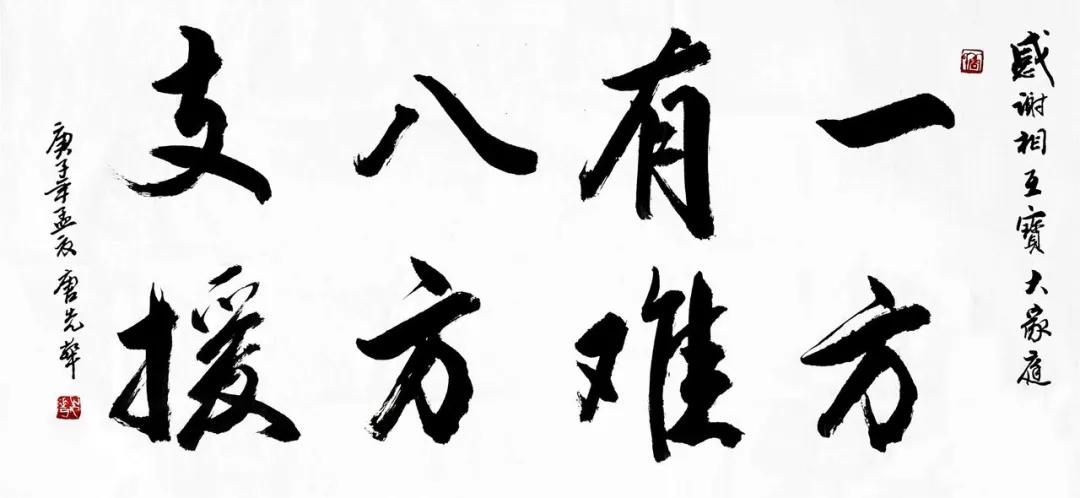 感谢相互寶大家庭
一方
有难
八方
支援
庚子年孟辰唐先華